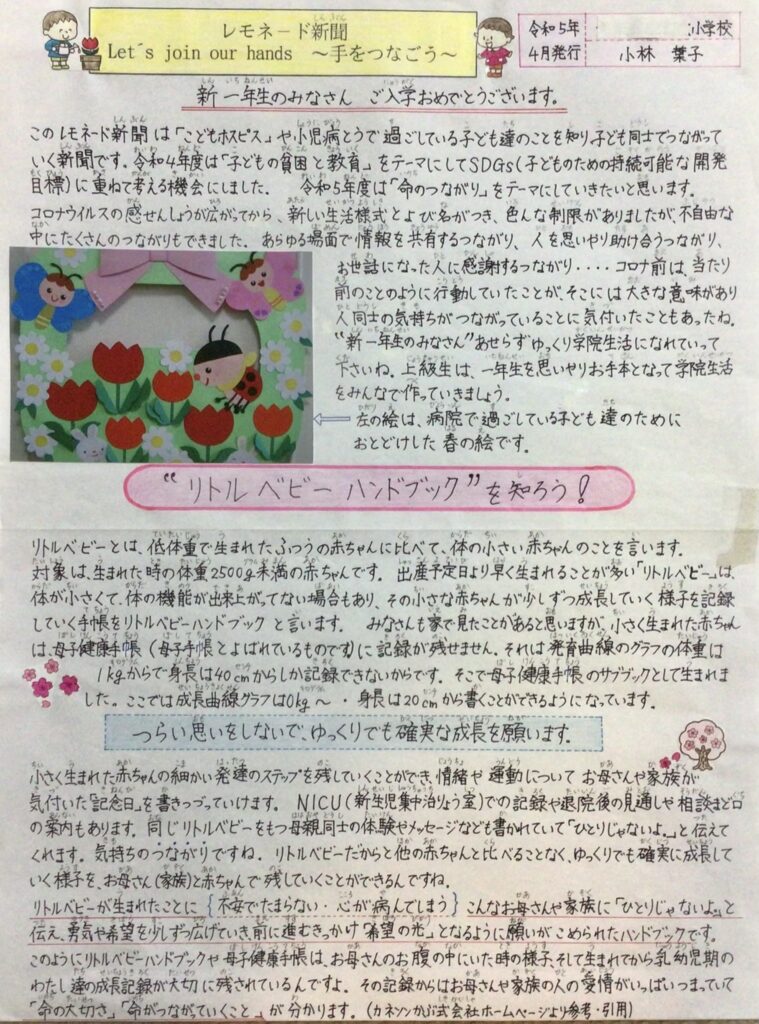 レモネード新聞
Let's join our hands ～手をつなごう～
令和5年
4月発行
小学校
小林 葉子
新一年生のみなさん ご入学おめでとうございます。
このレモネード新聞は「こどもホスピス」や小児病とうで過ごしている子ども達のことを知り子ども同士でつながって
いく新聞です。令和4年度は「子どもの貧困と教育」をテーマにしてSDGs(子どものための持続可能な開発
目標)に重ねて考える機会にしました。 令和5年度は「命のつながり」をテーマにしていきたいと思います。
コロナウイルスの感せんしょうが広がってから、新しい生活様式とよび名がつき、色んな制限がありましたが、不自由な
中にたくさんのつながりもできました。あらゆる場面で情報を共有するつながり、人を思いやり助け合うつながり、
お世話になった人に感謝するつながり････コロナ前は、当たり
前のことのように行動していたことが、そこには大きな意味があり
人同士の気持ちがつながっていることに気付いたこともあったね。
"新一年生のみなさん"あせらずゆっくり学院生活になれていって
下さいね。上級生は、一年生を思いやりお手本となって学院生活
をみんなで作っていきましょう。
左の絵は、病院で過ごしている子ども達のために
おとどけした春の絵です。
"リトルベビーハンドブック"を知ろう!
リトルベビーとは、低体重で生まれたふつうの赤ちゃんに比べて、体の小さい赤ちゃんのことを言います。
対象は、生まれた時の体重2500g未満の赤ちゃんです。出産予定日より早く生まれることが多い「リトルベビー」は、
体が小さくて、体の機能が出来上がってない場合もあり、その小さな赤ちゃんが少しずつ成長していく様子を記録
していく手帳をリトルベビーハンドブックと言います。 みなさんも家で見たことがあると思いますが、小さく生まれた赤ちゃん
は、母子健康手帳(母子手帳とよばれているものです)に記録が残せません。それは発育曲線のグラフの体重は
1kgからで身長は40cmからしか記録できないからです。そこで母子健康手帳のサブブックとして生まれま
した。ここでは成長曲線グラフは0kg～・身長は20cmから書くことができるようになっています。
つらい思いをしないで、ゆっくりでも確実な成長を願います。
小さく生まれた赤ちゃんの細かい発達のステップを残していくことができ、情緒や運動についてお母さんや家族が
気付いた「記念日」を書きつづっていけます。NICU(新生児集中治りょう室)での記録や退院後の見通しや相談まど口
の案内もあります。同じリトルベビーをもつ母親同士の体験やメッセージなども書かれていて「ひとりじゃないよ。」と伝えて
くれます。気持ちのつながりですね。リトルベビーだからと他の赤ちゃんと比べることなく、ゆっくりでも確実に成長して
いく様子を、お母さん(家族)と赤ちゃんで残していくことができるんですね。
リトルベビーが生まれたことに{不安でたまらない・心が病んでしまう}こんなお母さんや家族に「ひとりじゃないよ。」と
伝え、勇気や希望を少しずつ広げていき、前に進むきっかけ「希望の光」となるように願いがこめられたハンドブックです。
このようにリトルベビーハンドブックや母子健康手帳は、お母さんのお腹の中にいた時の様子、そして生まれてから乳幼児期の
わたし達の成長記録が大切に残されているんですよ。その記録からはお母さんや家族の人の愛情がいっぱいつまっていて
「命の大切さ」「命がつながていくこと」が分かります。(カネソンかぶ式会社ホームページより参考・引用)